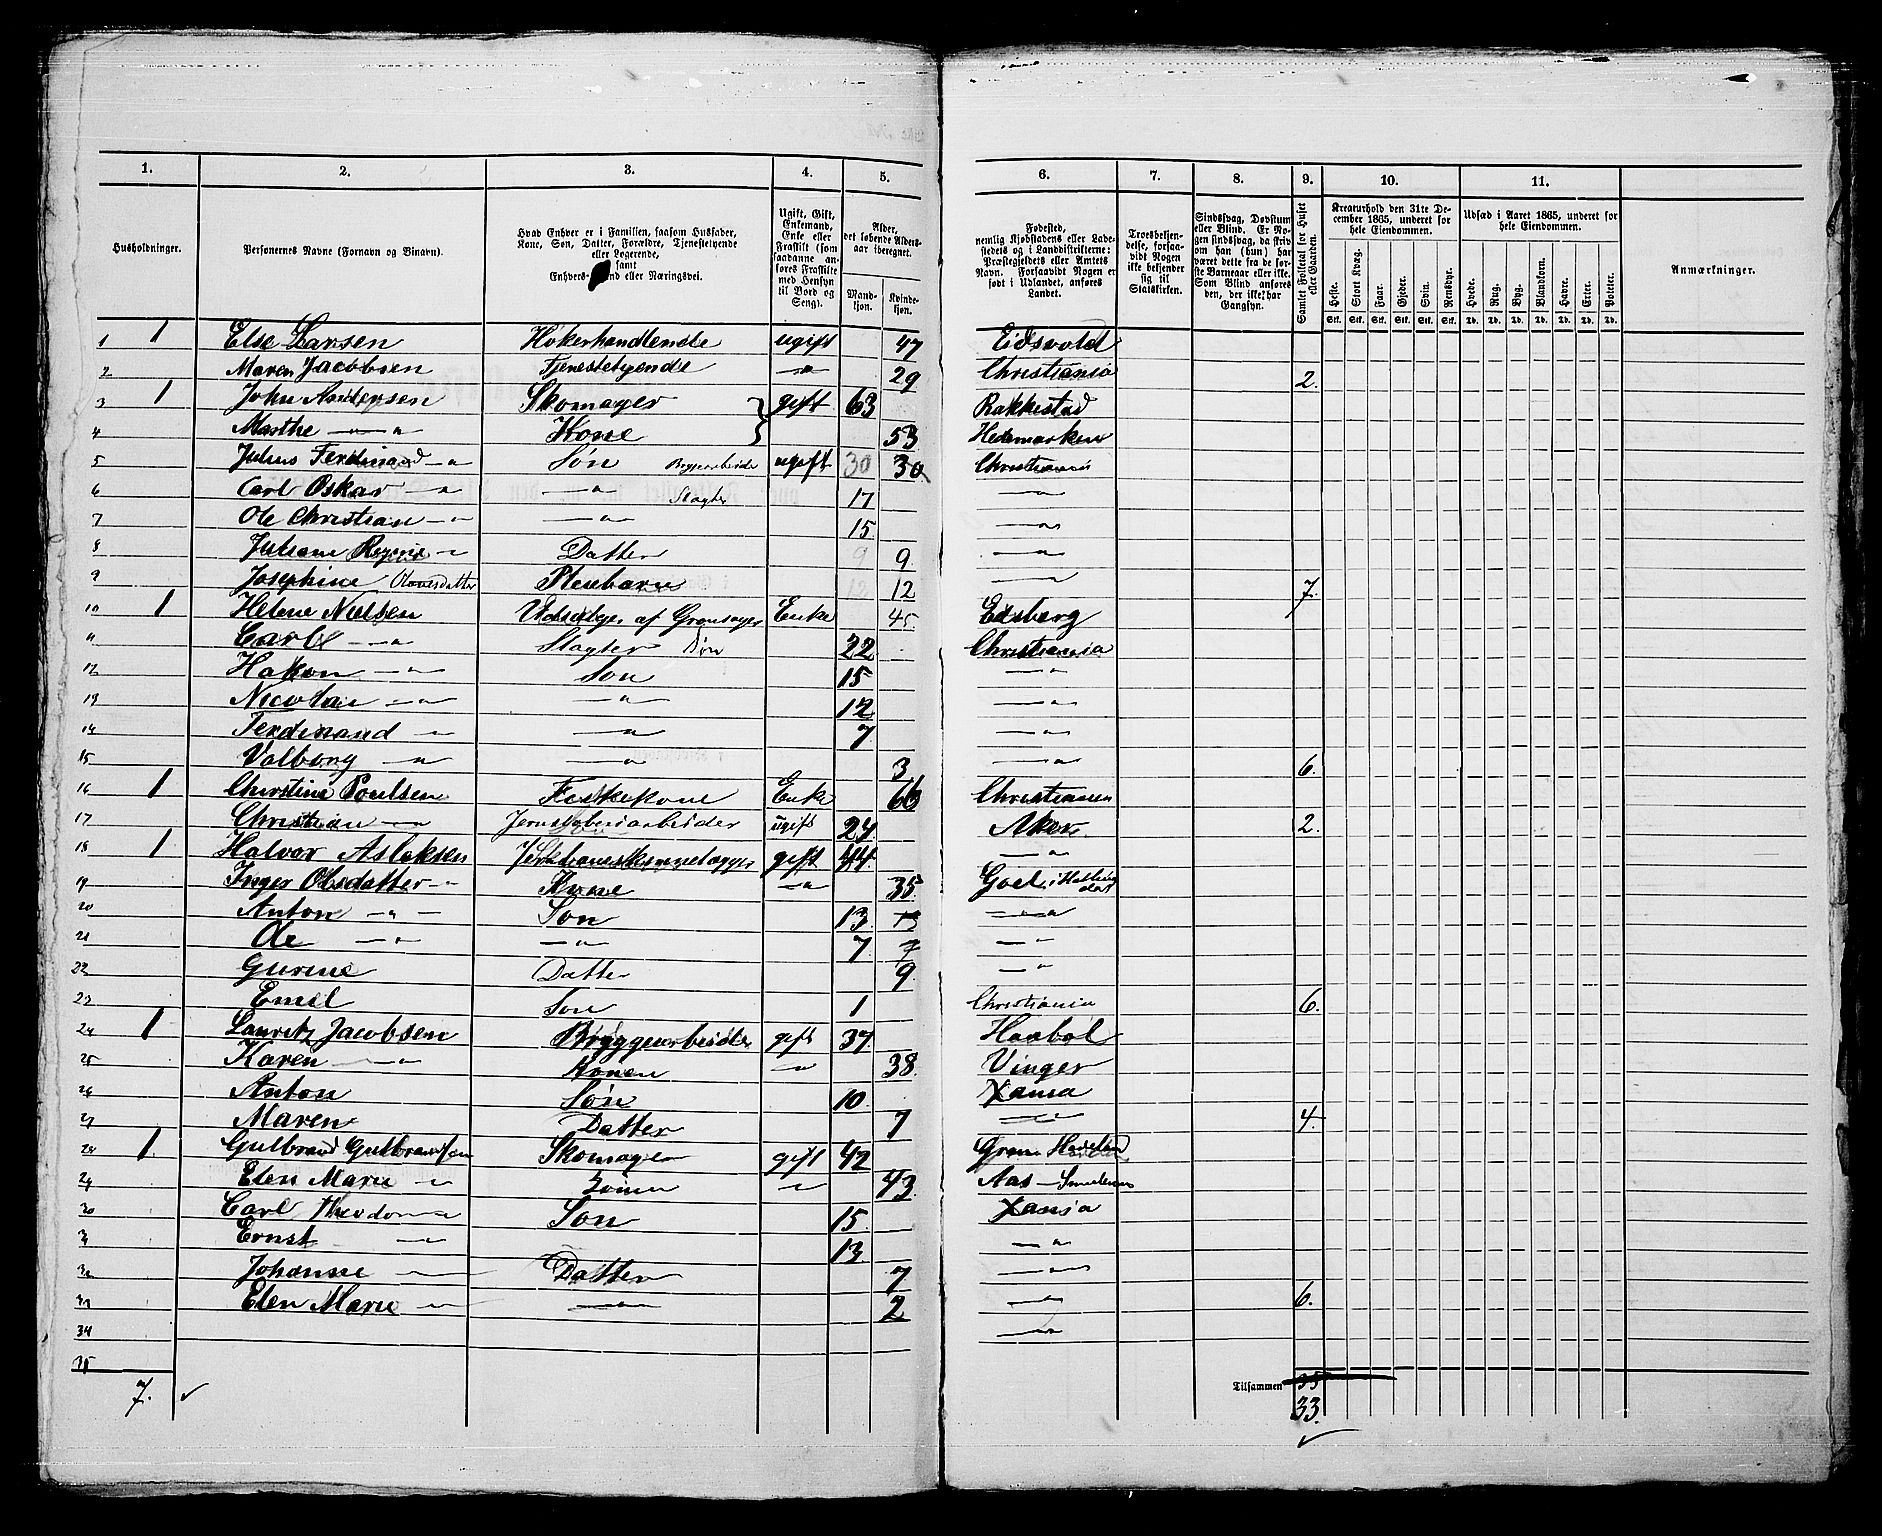 1. 2. 3. 4. 5. 6. 7. 8. 9. 10. 11.
Husholdninger.
Personernes Navne (Fornavn og Binavn).
Hvad Enhver er i Familien, saasom Husfader, Kone, Søn, Datter, Forældre, Tjenestetyende eller Logerende, samt Enhvers Stand eller Næringsvei.
Ugift, Gift, Enkemand, Enke eller Fraskilt (som saadanne anføres Fraskilte med Hensyn til Bord og Seng).
Alder, det løbende Aldersaar iberegnet.
Mandkjøn. Kvindekjøn.
Fødested, nemlig Kjøbstadens eller Ladestedets og i Landdistrikterne: Præstegjeldets eller Amtets Navn. Forsaavidt Nogen er født i Udlandet, anføres Landet.
Troesbekjendelse, forsaavidt Nogen ikke bekjender sig til Statskirken.
Sindssvag, Døvstum eller Blind. Er Nogen sindssvag, da skriv om han (hun) har været dette fra de første Barneaar eller ikke. Som Blind anføres den, der ikke har Gangsyn.
Samlet Folketal for Huset eller Gaarden.
Kreaturhold den 31te December 1865, underet for hele Eiendommen.
Heste. Stort Kvæg. Faar. Gjeder. Svin. Rensdyr.
Stk. Stk. Stk. Stk. Stk. Stk.
Udsæd i Aaret 1865, underet for hele Eiendommen.
Hvede. Rug. Byg. Blandkorn. Havre. Erter. Poteter.
Td. Td. Td. Td. Td. Td. Td.
Anmærkninger.
1 1 Else Larsen Høkerhandlende ugift 47 Eidsvold
2 Maren Jacobsen Tjenestetyende —"— 29 Christiania 2.
3 1 John Andersen Skomager gift 63 Rakkestad
4 Marthe —"— Kone 53 Hedemarken
5 Julius Ferdinand —"— Søn Bryggearbeider ugift 30 30 Christiania
6 Carl Oskar —"— —"— Slagter 17 —"—
7 Ole Christian —"— —"— 15 —"—
8 Juliane Regine —"— Datter 9 9 —"—
9 Josephine Olavesdatter Pleiebarn 12 12 —"— 7.
10 1 Helene Nielsen Udsælger af Grønsager Enke 45 Edsberg
11 Carl —"— Slagter Søn 22 Christiania
12 Hakon —"— Søn 15 —"—
13 Nicolai —"— —"— 12 —"—
14 Ferdinand —"— —"— 7 —"—
15 Valborg —"— —"— 3 —"— 6.
16 1 Christine Poulsen Fiskekone Enke 66 Christiania
17 Christian —"— Jernstøberiarbeider ugift 24 Aker 2.
18 1 Halvor Aslaksen gift 44 —"—
19 Inger Olsdatter —"— Kone —"— 35 Goel i Hallingdal
20 Anton —"— Søn 13 13 —"—
21 Ole —"— —"— 7 7 —"—
22 Gurine Datter 9 —"—
23 Emil Søn 1 Christiania 6.
24 1 Lauritz Jacobsen Bryggearbeider gift 37 Haabøl
25 Karen —"— Konen —"— 38 Vinger
26 Anton Søn 10 Xania
27 Maren Datter 7 —"— 4.
28 1 Gulbrand Gulbrandsen Skomager gift 42 Gran Hadeland
29 Elen Marie —"— Konen —"— 43 Aas — Smaalenene
30 Carl Theodor —"— Søn 15 Xania
31 Ernst —"— 13 —"—
32 Johanne —"— Datter 7 —"—
33 Elen Marie —"— —"— 2 —"— 6.
34 —"—
35
7. ✓ Tilsammen 35
33.
✓